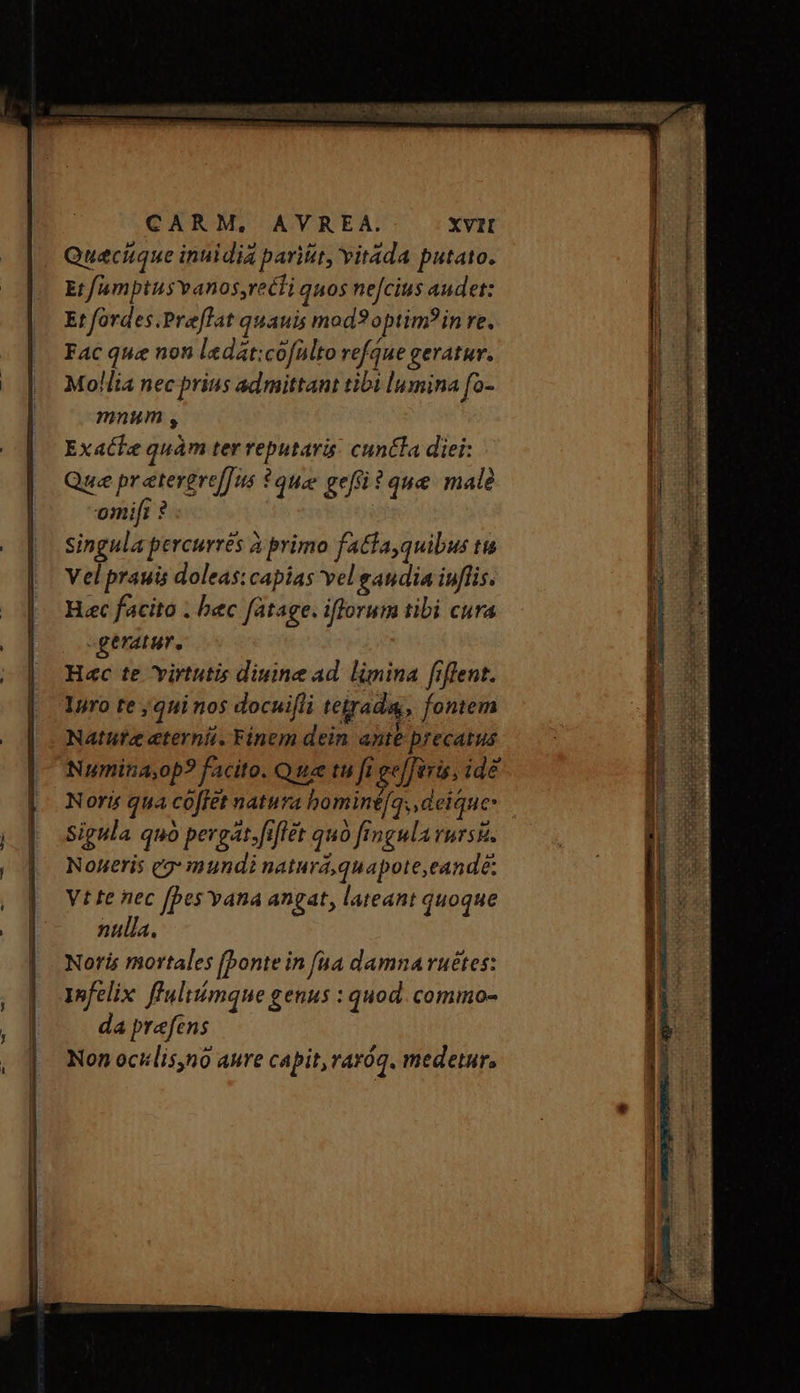 CARM. AVREA. XVII
Quæcũque inuidiã pariũt, vitãda putato.
Et ſumptus vanos, recti quos neſcius audet:
Et ſordes. Præſtat quauis modꝰ optimꝰ in re.
Fac quæ non lædãt: cõſulto reſque geratur.
Mollia nec prius admittant tibi lumina ſo-
mnum,
Exacte quàm ter reputaris cuncta diei:
Quæ prætergreſſus? quæ geſſi? quæ malè
omiſi?
Singula percurrẽs à primo facta, quibus tu
Vel prauis doleas: capias vel gaudia iuſtis.
Hæc facito. hæc ſatage. iſtorum tibi cura
geratur.
Hæc te virtutis diuinæ ad limina ſiſtent.
Iuro te, qui nos docuiſti tetrada, fontem
Naturæ æternũ. Finem dein ante precatus
Numina, opꝰ facito. Quæ tu ſi geſſeris, idẽ
Noris qua cõſtet natura hominẽſq;, deique
Sigula quò pergãt, ſiſtẽt quò ſingula rursũ.
Noueris & mundi naturã, quapote, eandẽ:
Vt te nec ſpes vana angat, lateant quoque
nulla.
Noris mortales ſponte in ſua damna ruẽtes:
Infelix ſtultúmque genus: quod commo-
da præſens
Non oculis, nõ aure capit, raróq. medetur.